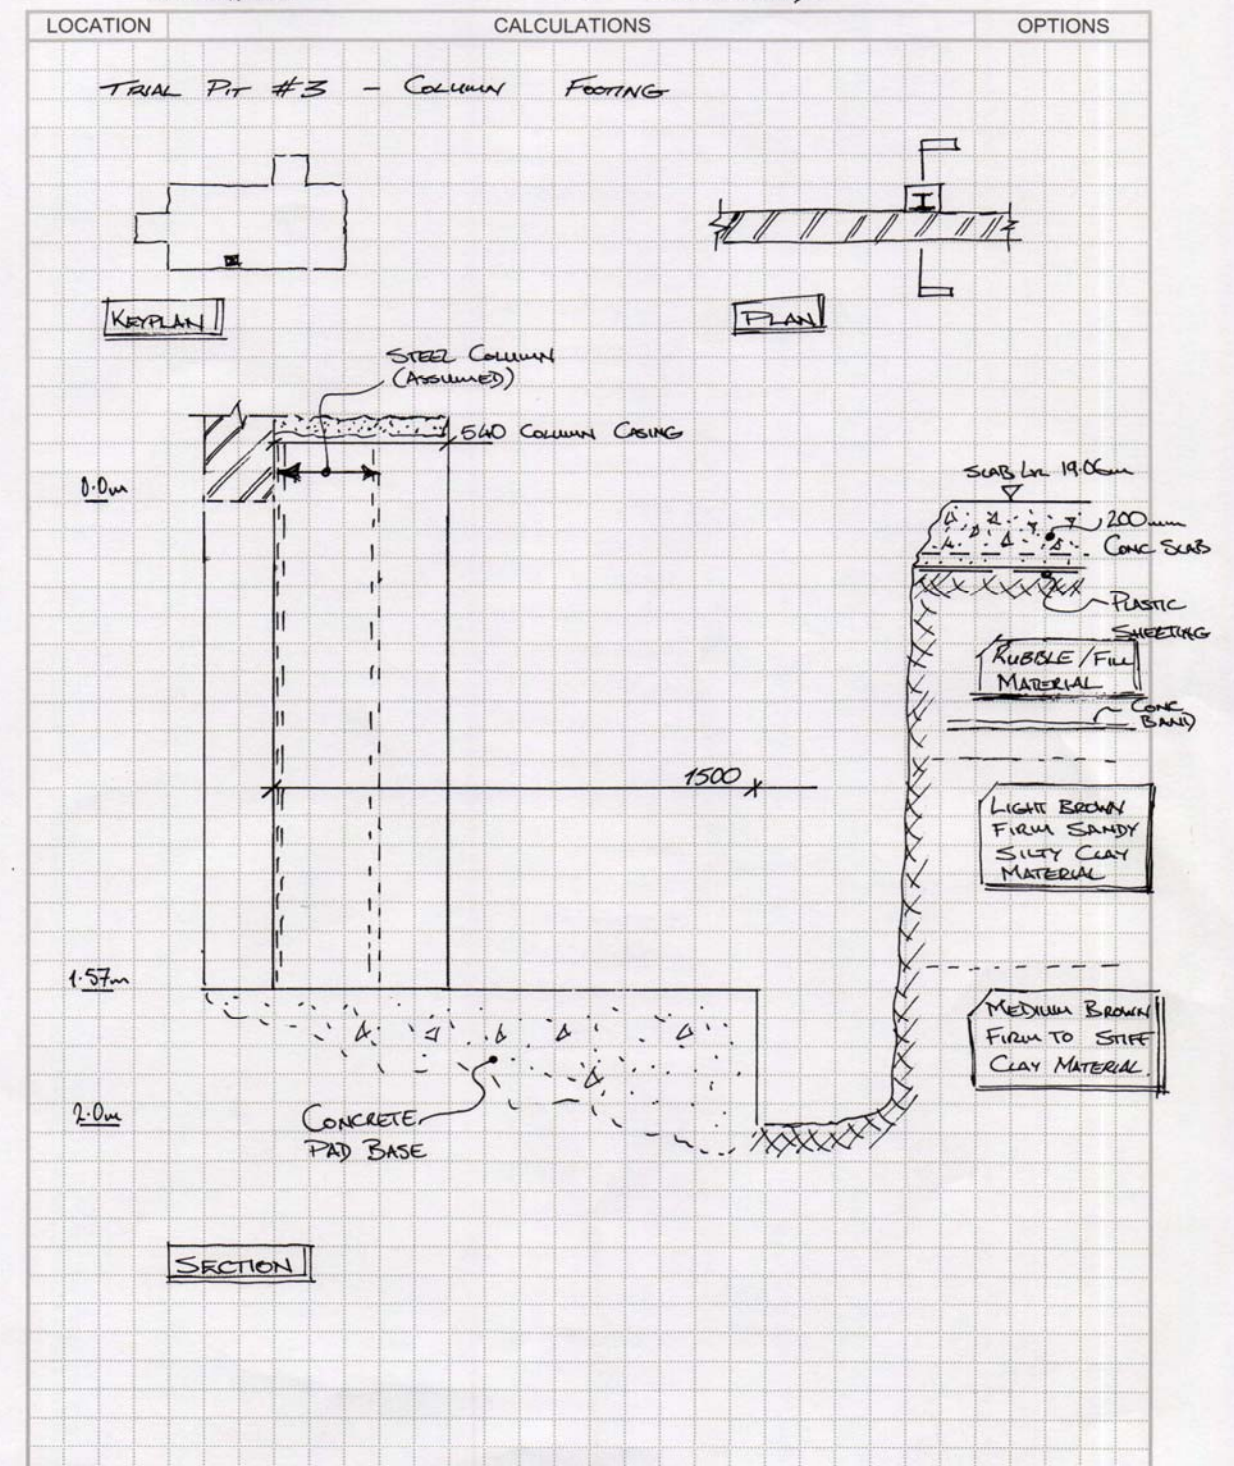 LOCATION
CALCULATIONS
OPTIONS
TRIAL PIT #3 - COLUMN FOOTING
KEYPLAN
PLAN
STEEL COLUMN
(ASSUMED)
540 COLUMN CASING
0.0m
SLAB LVL 19.06m
200mm
CONC SLAB
PLASTIC
SHEETING
RUBBLE/FILL
MATERIAL
CONC
BAND
1500
LIGHT BROWN
FIRM SANDY
SILTY CLAY
MATERIAL
1.57m
MEDIUM BROWN
FIRM TO STIFF
CLAY MATERIAL.
2.0m
CONCRETE
PAD BASE
SECTION